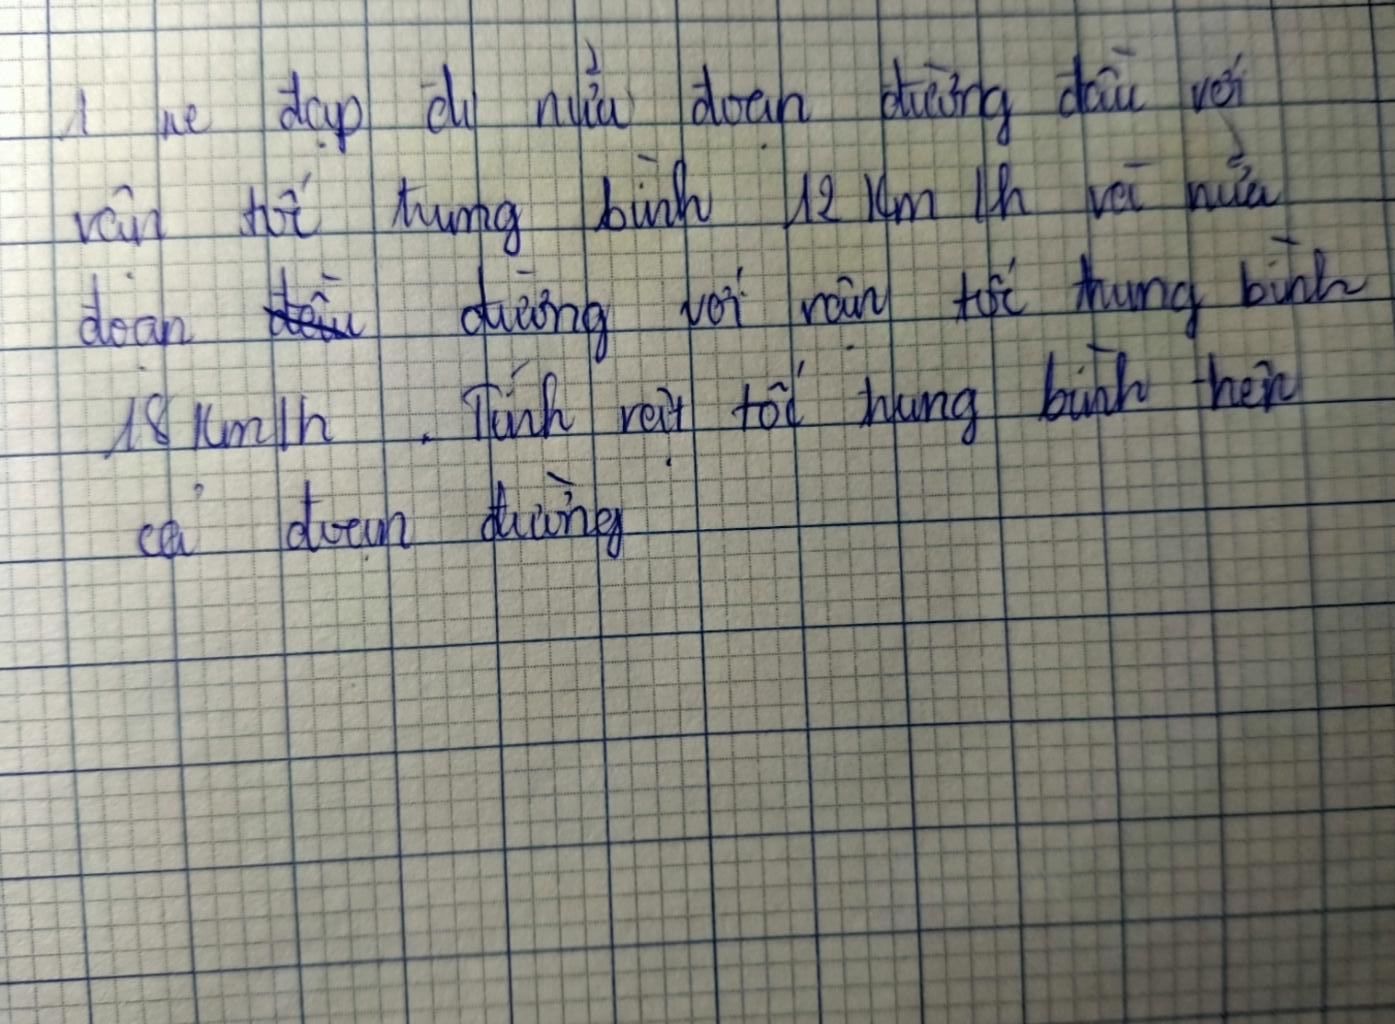 1 xe đạp đi nửa đoạn đường đầu với
vận tốc trung bình 12 km/h và nửa
đoạn đường với vận tốc trung bình
18 km/h. Tính vận tốc trung bình trên
cả đoạn đường